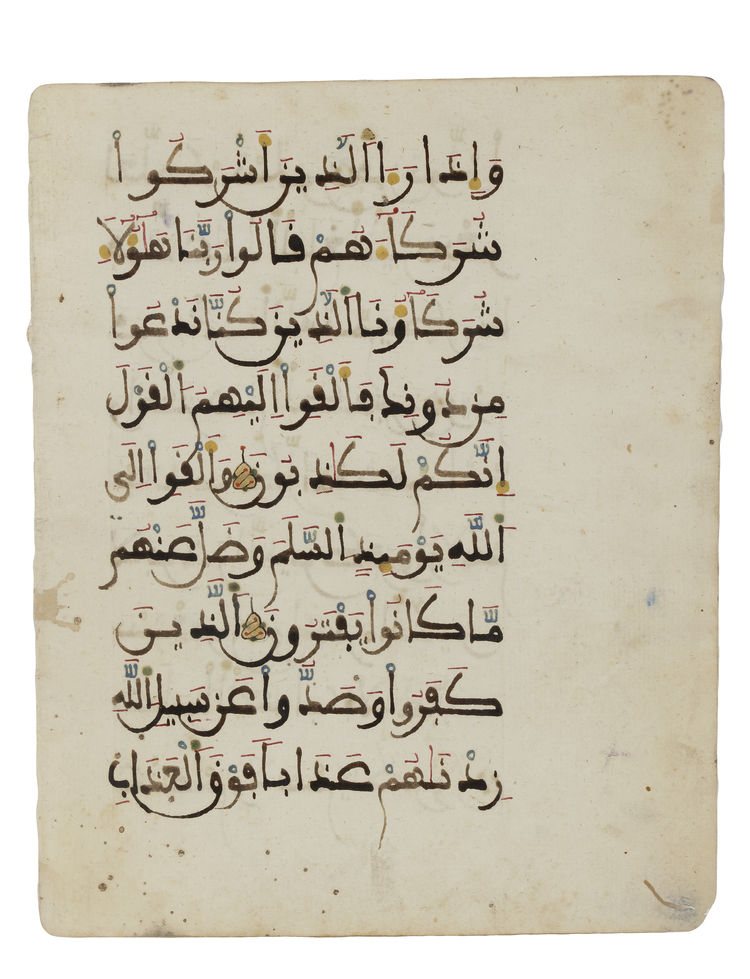 وَإِذَا رَءَا ا۬لَّذِينَ أَشْرَكُواْ
شُرَكَآءَهُمْ قَالُواْ رَبَّنَا هَٰٓؤُلَآءِ
شُرَكَآؤُنَا ا۬لَّذِينَ كُنَّا نَدْعُواْ
مِن دُونِكَ فَأَلْقَوِاْ اِلَيْهِمُ ا۬لْقَوْلَ
إِنَّكُمْ لَكَٰذِبُونَ وَأَلْقَوِاْ اِلَى
ا۬للَّهِ يَوْمَئِذٍ ا۬لسَّلَمَ وَضَلَّ عَنْهُم
مَّا كَانُواْ يَفْتَرُونَ ا۬لَّذِينَ
كَفَرُواْ وَصَدُّواْ عَن سَبِيلِ ا۬للَّهِ
زِدْنَٰهُمْ عَذَابًا فَوْقَ ا۬لْعَذَابِ